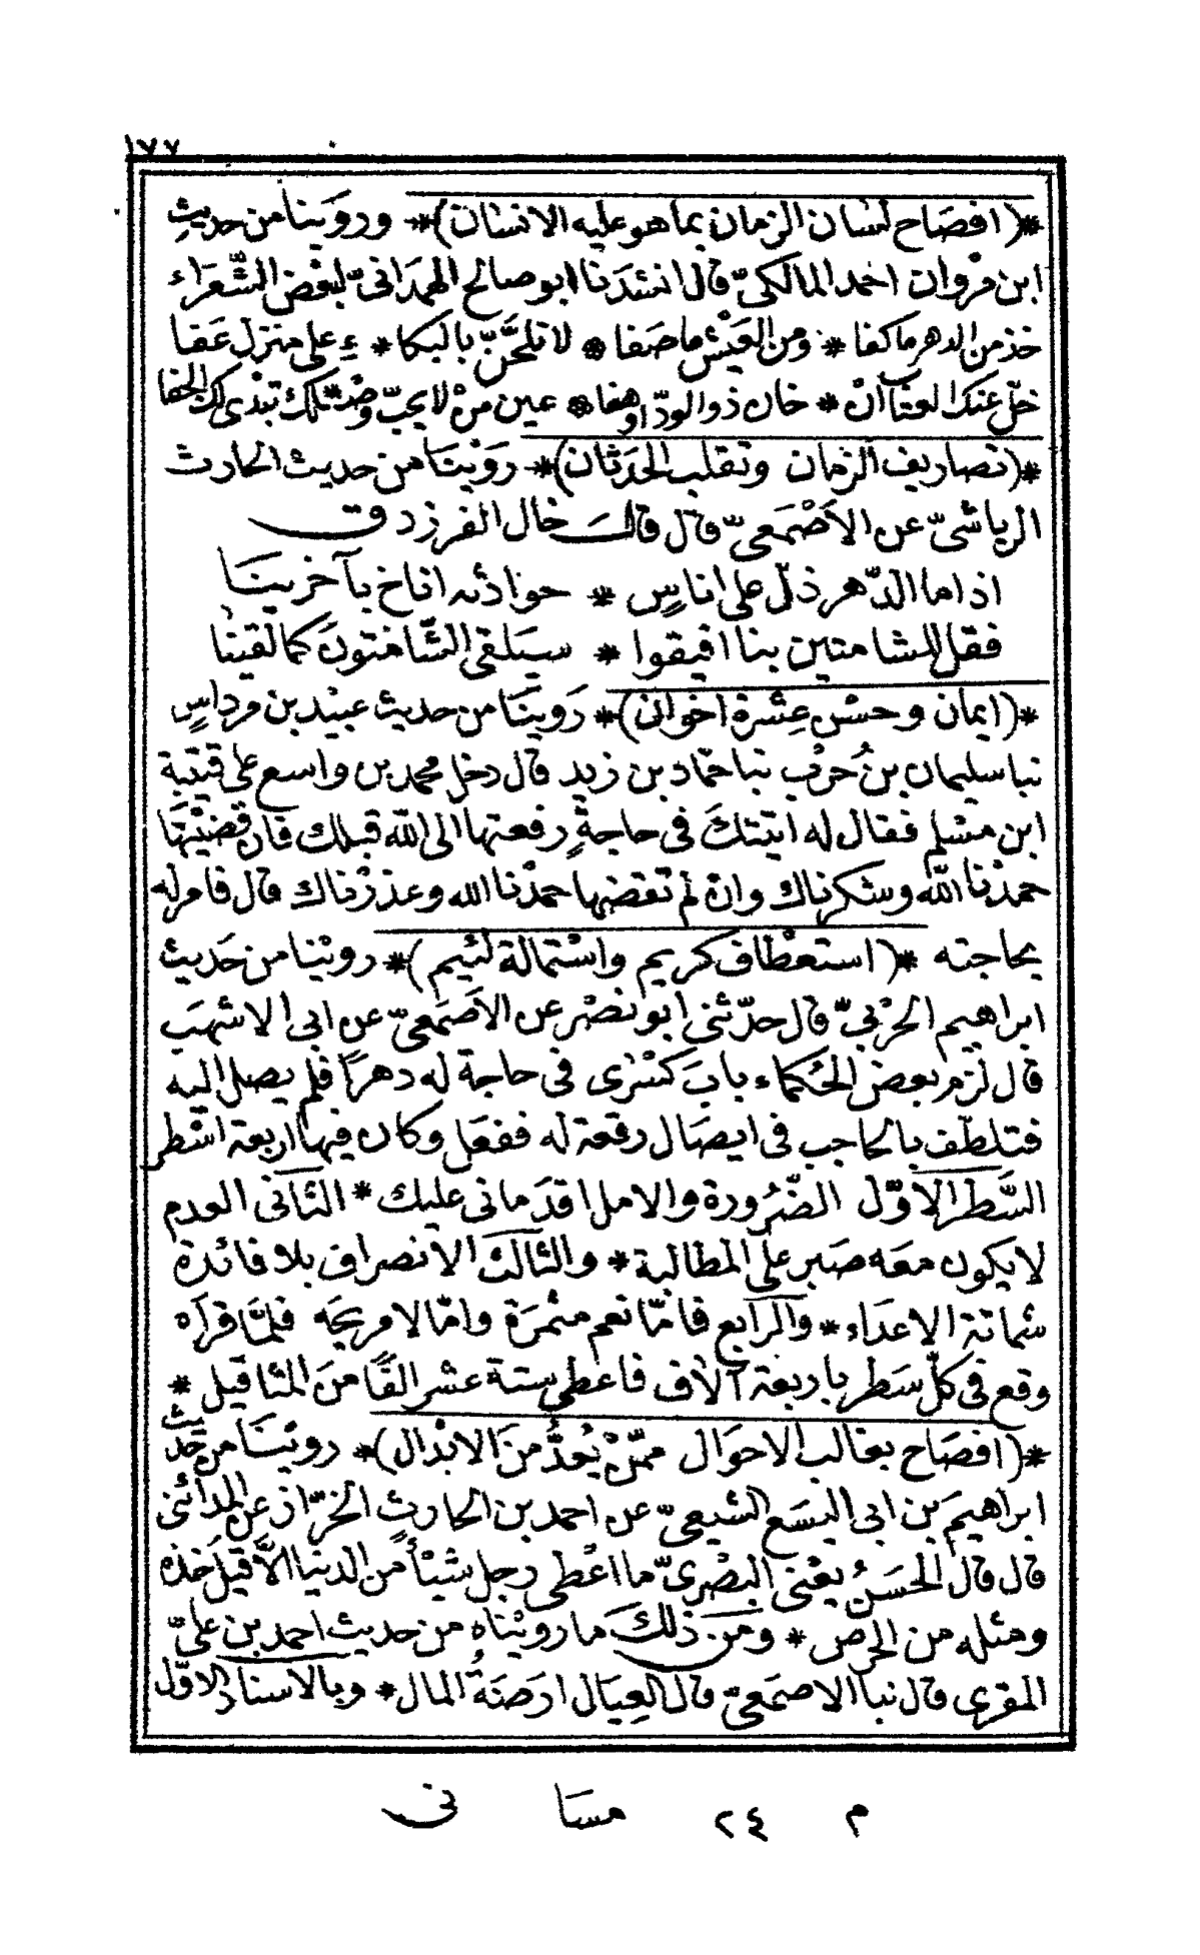 ١٧٧
*(افصاح لسان الزمان بما هو عليه الانسان)* وروَيْنا من حديث
ابن مروان احمد المالكىّ قال انشدنا ابو صالح الهمدانىّ لبعض الشّعراء
خذ من الدهر ما كفا * ومن العَيْش ما صَفا * لا تلحَّنّ بالبكا * ءِ على منزل عَفا
خلّ عنك العتاب انْ * خان ذو الودّ اوهفا * عين من لا يحبّ وصْلك تبْدى لك الجفا
*(تصاريف الزمان وتقلب الحدثان)* روَيْنَا من حديث الحارث
الرياشىّ عن الاَصْمَعىّ قال قالَ خال الفرزدق
اذا ما الدّهر ذلّ على اناسٍ * حوادثه اناخ بآخرينَا
فقل للشامتين بنا افيقوا * سيَلقى الشّامتونَ كما لقينا
*(ايمان وحسْن عِشرة اخوان)* رَويَنَا من حديث عبيْد بن مرداسٍ
نبا سليمان بن حُرْب نبا حمّاد بن زيد قال دخل محمد بن واسع على قتيبة
ابن مسْلم فقال له اتيْتكَ فى حاجةٍ رفعتها الى اللّه قبلك فان قضيْتهَا
حمدْنا اللّه وشكرناك وانْ لم تقضها حمدْنا الله وعذرْناك قال فامر له
بحاجته *(استعْطاف كريم واسْتمالة لئيم)* رويْنا من حَديث
ابراهيم الحرْبىّ قال حدّثنى ابو نصْر عن الاَصمَعىّ عن ابى الاشهَب
قال لزم بعض الحُكماء بابَ كسْرى فى حاجة له دهرًا فلم يصل اليه
فتلطّف بالحاجب فى ايصَال رقعة له ففعَل وكان فيها اربعة اسْطر
السَّطر الاوّل الضّرُورة والامل اقدَمانى عليك * الثانى العدم
لا يكون معَه صَبر على المطالبة * والثالث الانصراف بلا فائدة
شماتة الاعدَاء * والرابع فامّا نعم مثمرَة وامّا لا مريحَه فلمَّا قرآه
وقع فى كلّ سَطر باربعة آلاف فاعطى ستة عشر الفًا منَ المثاقيل *
*(افصَاح بغالب الاحوَال ممّنْ يُعَدُّ منَ الابْدال)* رويْنَا من حَديث
ابراهيمَ بن ابى اليسَع الشيعىّ عن احمد بن الحارث الخرّاز عن المدائنى
قال قال الحسَنُ يعْنى البصْرىّ ما اعْطى رجل شيْئًا من الدنيا الاّ قيلَ خذه
ومثله من الحرص * ومن ذلكَ ما رويْناه من حديث احمد بن علىّ
المقرى قال نبا الاصمَعىّ قال العِيَال ارَضَةُ المال * وبالاسناد الاوّل
م ٢٤ مسَا نى